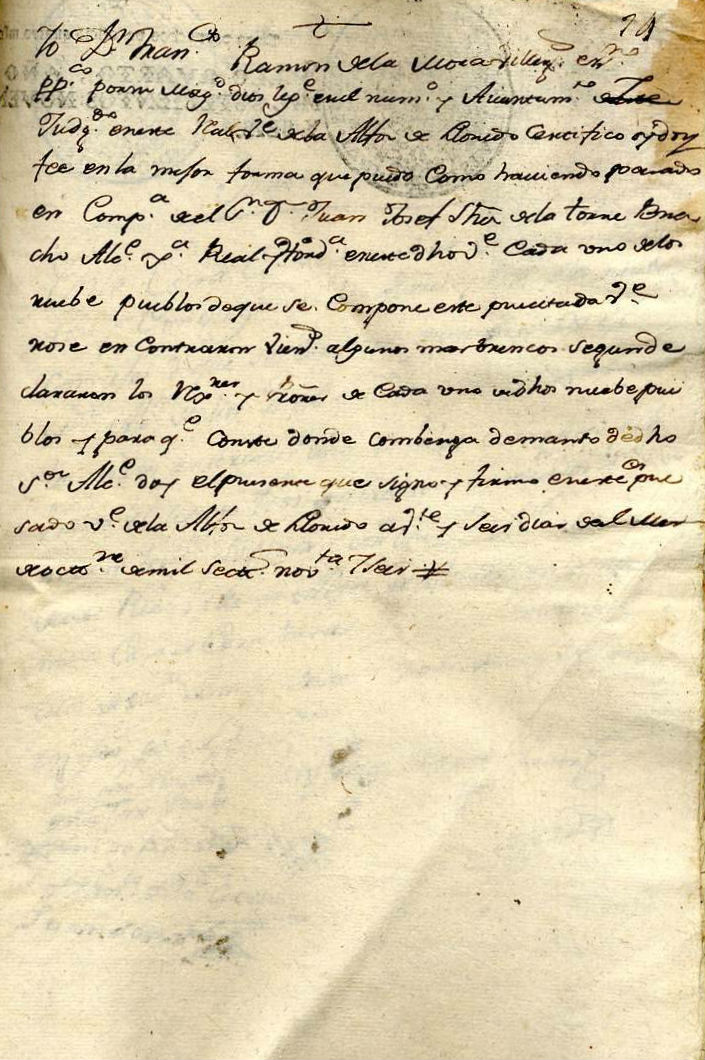 Yo Dn Franco Ramon de la Mora Villegs essno
ppco por su Magd dios le gue en el numo y Aiuntamto
Judgdo en este Real Ve de la Alfos de Lloredo Certifico y doy
fee en la mejor forma que puedo Como haviendo pasado
en Compa del Sr Dn Juan Josef Shez de la torre Bus
Alce Real en este dho Ve Cada uno de los
nuebe pueblos de que se Compone este precitado Ve
no se en Contraron algunos mostrencos segun de
clararon los Rexres y de Cada uno de dhos nuebe pue
blos y para qe Conste donde Combenga de manto de dho
Sor Alce doy el presente que signo y firmo en este pre
sado Ve de la Alfoz de Lloredo a Vte y seis dias del Mes
de octre de mil Setcs novta y seis